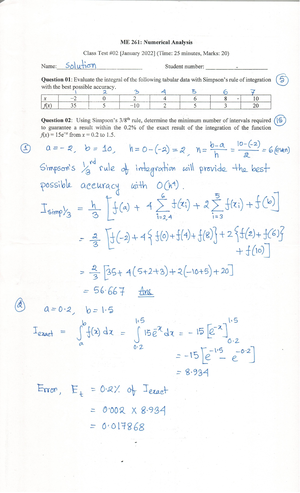 ME 261: Numerical Analysis
Class Test #02 [January 2022] (Time: 25 minutes, Marks: 20)
Name: Solution Student number:
Question 01: Evaluate the integral of the following tabular data with Simpson's rule of integration (5)
with the best possible accuracy.
1 2 3 4 5 6 7
x -2 0 2 4 6 8 10
f(x) 35 5 -10 2 5 3 20
Question 02: Using Simpson's 3/8th rule, determine the minimum number of intervals required (15)
to guarantee a result within the 0.2% of the exact result of the integration of the function
f(x) = 15e^-x from x = 0.2 to 1.5.
① a = -2, b = 10, h = 0-(-2) = 2, n = (b-a)/h = (10-(-2))/2 = 6 (even)
Simpson's 1/3 rd rule of integration will provide the best
possible accuracy with O(h⁴).
I simp 1/3 = h/3 [f(a) + 4 Σ_{i=2,4}^{6} f(xi) + 2 Σ_{i=3}^{5} f(xi) + f(b)]
= 2/3 [f(-2) + 4{f(0)+f(4)+f(8)} + 2{f(2)+f(6)}
+ f(10)]
= 2/3 [35 + 4(5+2+3) + 2(-10+5) + 20]
= 56.667 Ans
② a = 0.2, b = 1.5
I exact = ∫_a^b f(x) dx = ∫_{0.2}^{1.5} 15e^-x dx = -15 [e^-x]_{0.2}^{1.5}
= -15 [e^-1.5 - e^-0.2]
= 8.934
Error, E_t = 0.2% of I exact
= 0.002 × 8.934
= 0.017868